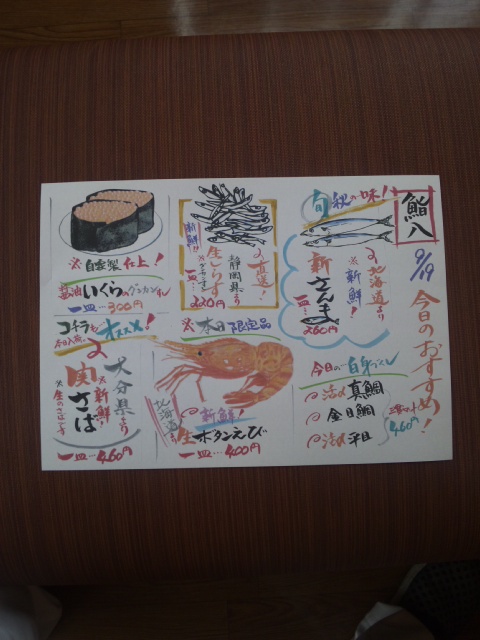 鮨八
9/19
今日のおすすめ!
旬 秋の味!!
北海道より
※新鮮!
新さんま
一皿…260円
今日の白身づくし
活〆真鯛
金目鯛
活〆平目
460円
新鮮!!
直送!
静岡県より
生しらす
一皿…
220円
※本日限定品
北海道より
新鮮!
生ボタンえび
一皿…400円
※自家製仕上!
醤油いくらのグンカン
一皿…300円
コチラも
オススメ!
本日入荷
大分県より
※新鮮!
関さば
※生のさばです
一皿…460円